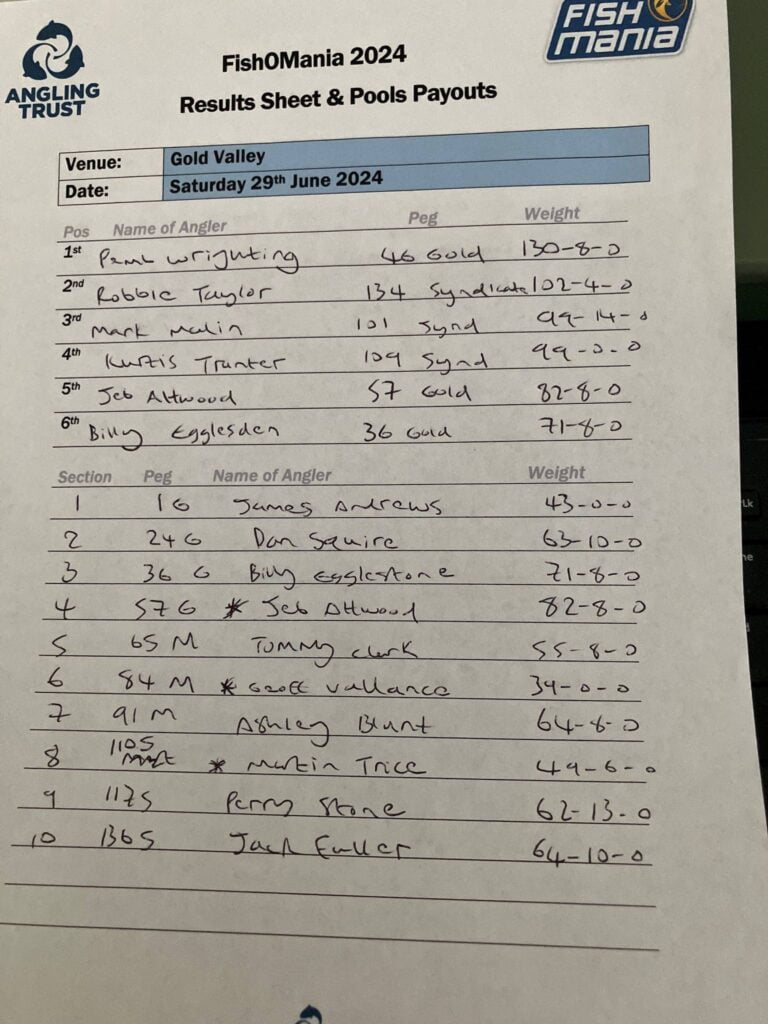 ANGLING
TRUST
FishOMania 2024
FISH
mania
Results Sheet & Pools Payouts
Venue: Gold Valley
Date: Saturday 29th June 2024
Pos Name of Angler Peg Weight
1st Wrighting 46 Gold 130-8-0
2nd Robbie Taylor 134 Syndicate 102-4-0
3rd Mark Malin 101 Synd 99-14-0
4th Kurtis Trunter 109 Synd 99-0-0
5th Jeb Attwood 57 Gold 82-8-0
6th Billy Egglesden 36 Gold 71-8-0
Section Peg Name of Angler Weight
1 1G James Andrews 43-0-0
2 24 G Dan Squire 63-10-0
3 36 G Billy Egglestone 71-8-0
4 57G * Jeb Attwood 82-8-0
5 65 M Tommy Clark 55-8-0
6 84 M * Geoff Vallance 39-0-0
7 91 M Ashley Blunt 64-8-0
8 110S * Martin Trice 49-6-0
9 117S Perry Stone 62-13-0
10 136S Jack Fuller 64-10-0